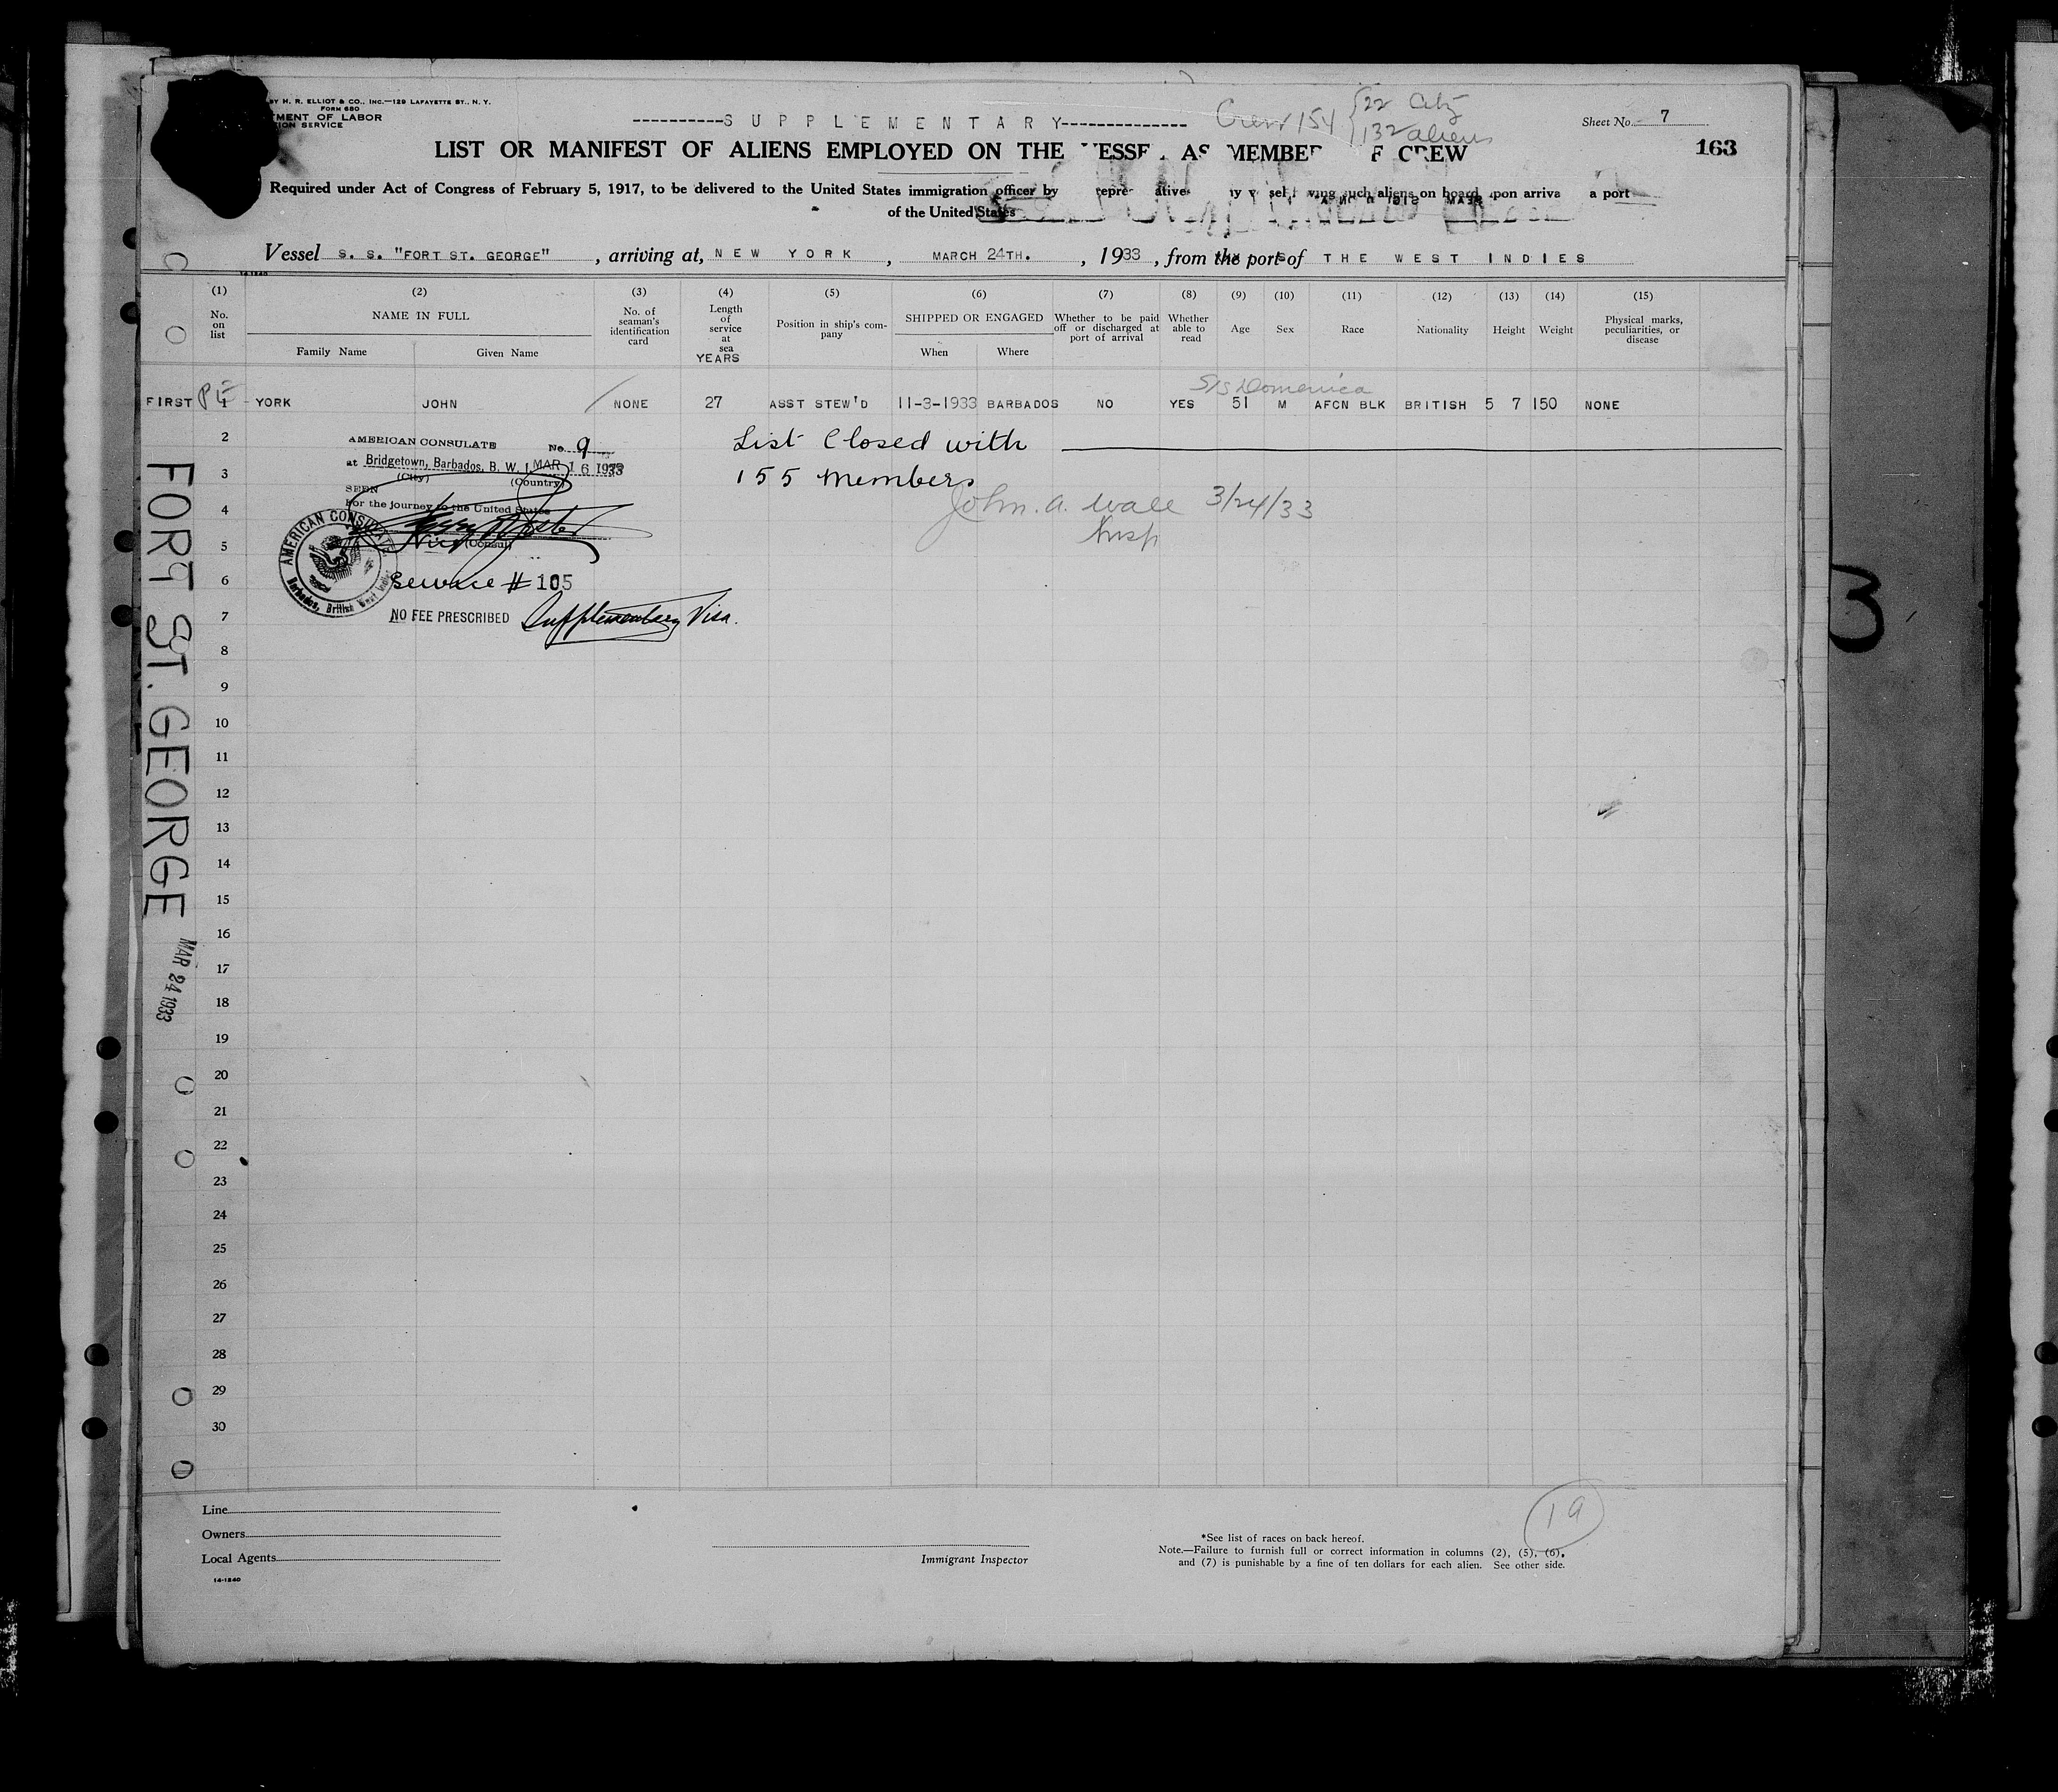 BY H. R. ELLIOT & CO., INC.—129 LAFAYETTE ST., N. Y.
FORM 680
TMENT OF LABOR
TION SERVICE
----------SUPPLEMENTARY--------------
Crew 154 {22 Citz
132 aliens
Sheet No. 7
163
LIST OR MANIFEST OF ALIENS EMPLOYED ON THE VESSE AS MEMBER F CREW
Required under Act of Congress of February 5, 1917, to be delivered to the United States immigration officer by epre atives ny v sel h ving such aliens on board upon arriva a port
of the United States
Vessel S. S. "FORT ST. GEORGE", arriving at, NEW YORK, MARCH 24TH., 1933, from the port of THE WEST INDIES
14-1240
(1) (2) (3) (4) (5) (6) (7) (8) (9) (10) (11) (12) (13) (14) (15)
No. on list
NAME IN FULL
Family Name
Given Name
No. of seaman's identification card
Length of service at sea
YEARS
Position in ship's company
SHIPPED OR ENGAGED
When
Where
Whether to be paid off or discharged at port of arrival
Whether able to read
Age
Sex
Race
Nationality
Height
Weight
Physical marks, peculiarities, or disease
S/S Domenica
FIRST 1 YORK JOHN NONE 27 ASST STEW'D 11-3-1933 BARBADOS NO YES 51 M AFCN BLK BRITISH 5 7 150 NONE
2
AMERICAN CONSULATE No. 9
List Closed with
at Bridgetown, Barbados, B. W. I. MAR 16 1933
(City) (Country)
3
155 Members
SEEN
For the journey to the United States
4
John. A. Wale 3/24/33
Insp
(Consul)
5
AMERICAN CONSULATE
Barbados, British West Indies
6
Service # 105
7
NO FEE PRESCRIBED Supplementary Visa.
8
9
10
11
12
13
14
15
16
17
18
19
20
21
22
23
24
25
26
27
28
29
30
FORT ST. GEORGE
MAR 24 1933
3
Line
Owners
Local Agents
14-1240
Immigrant Inspector
19
*See list of races on back hereof.
Note.—Failure to furnish full or correct information in columns (2), (5), (6),
and (7) is punishable by a fine of ten dollars for each alien. See other side.